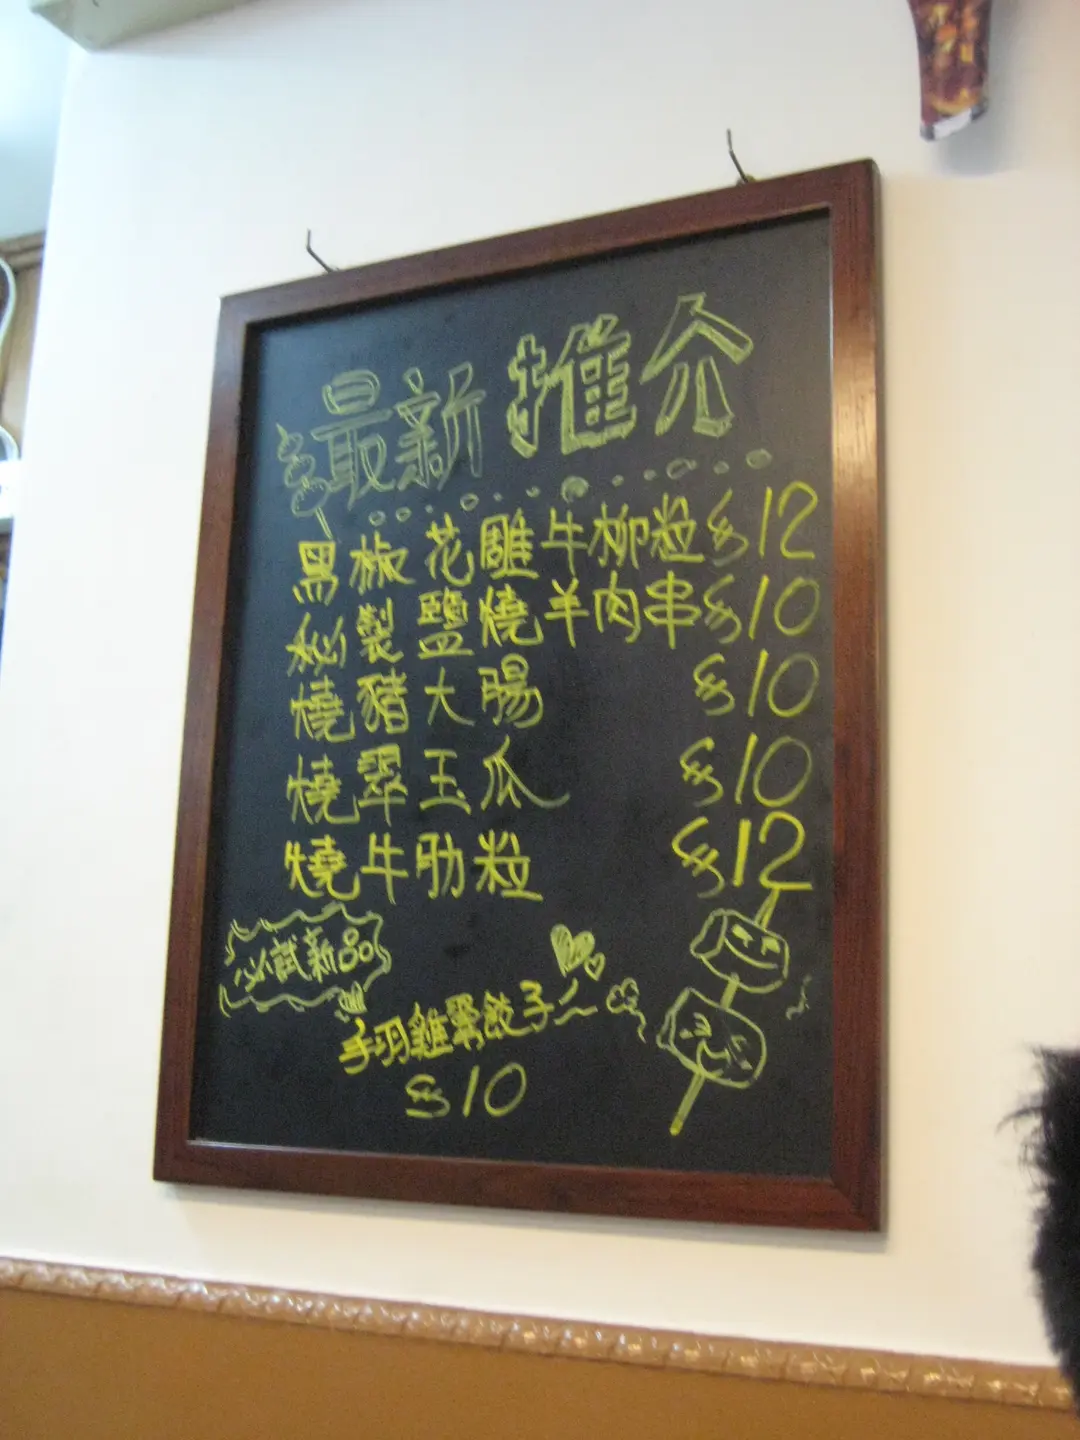 最新推介
黑椒花雕牛柳粒 $12
秘製鹽燒羊肉串 $10
燒豬大腸 $10
燒翠玉瓜 $10
燒牛肋粒 $12
必試新品
手羽雞翼餃子~
$10